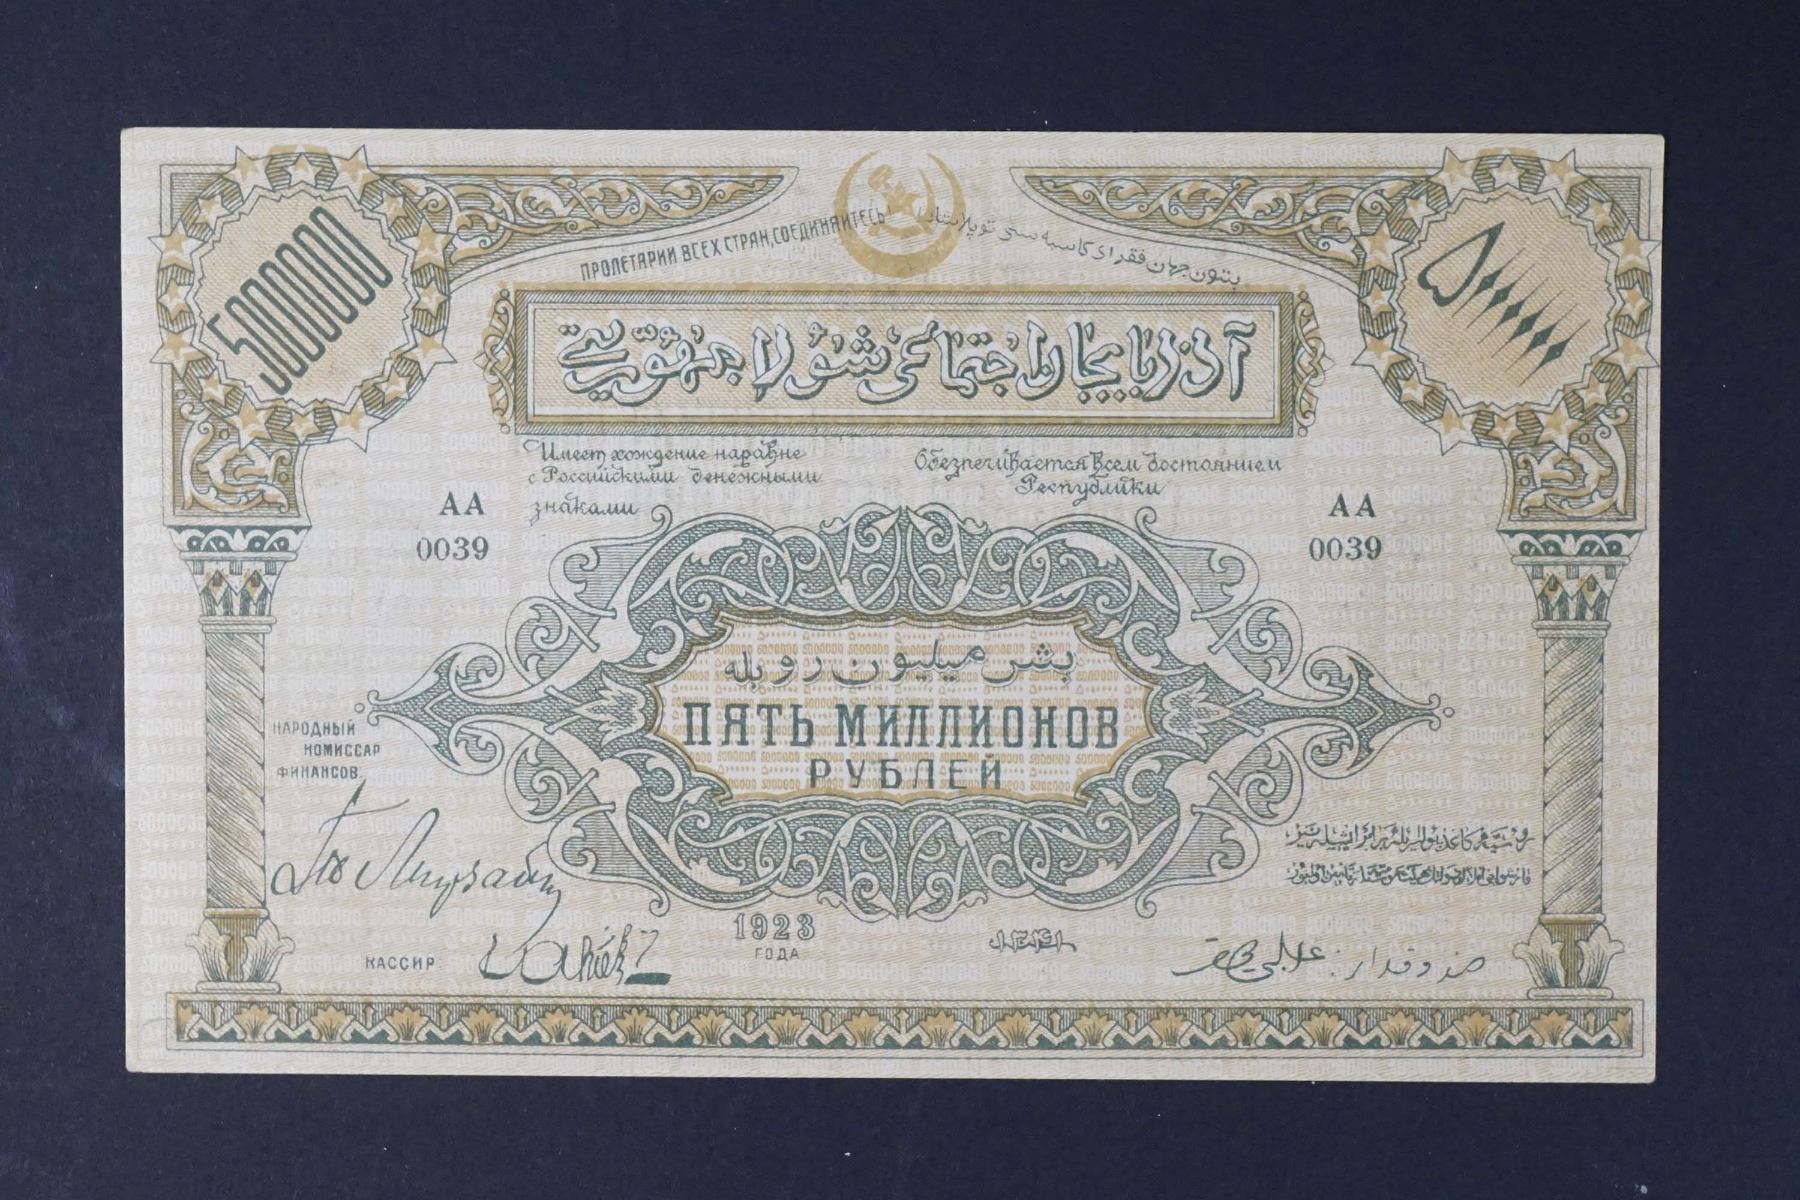 5000000
ПРОЛЕТАРИИ ВСЕХ СТРАН, СОЕДИНЯЙТЕСЬ!
بتون جهان فقرای کاسبه سی توپلاشیڭ
۵۰۰۰۰۰۰
آذربایجان اجتماعی شورالار جمهوریتی
Имеет хождение наравне
с Российскими денежными
знаками
Обезпечивается всем достоянием
Республики
АА
0039
АА
0039
بش میلیون روبله
ПЯТЬ МИЛЛИОНОВ
РУБЛЕЙ
НАРОДНЫЙ
КОМИССАР
ФИНАНСОВ.
КАССИР
1923
ГОДА
صندوقدار: